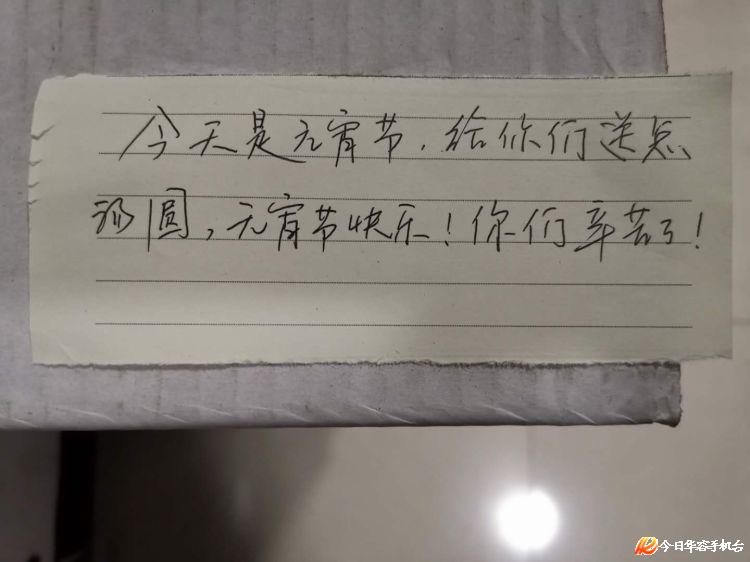 今天是元宵节,给你们送点
汤圆,元宵节快乐!你们辛苦了!
今日华容手机台